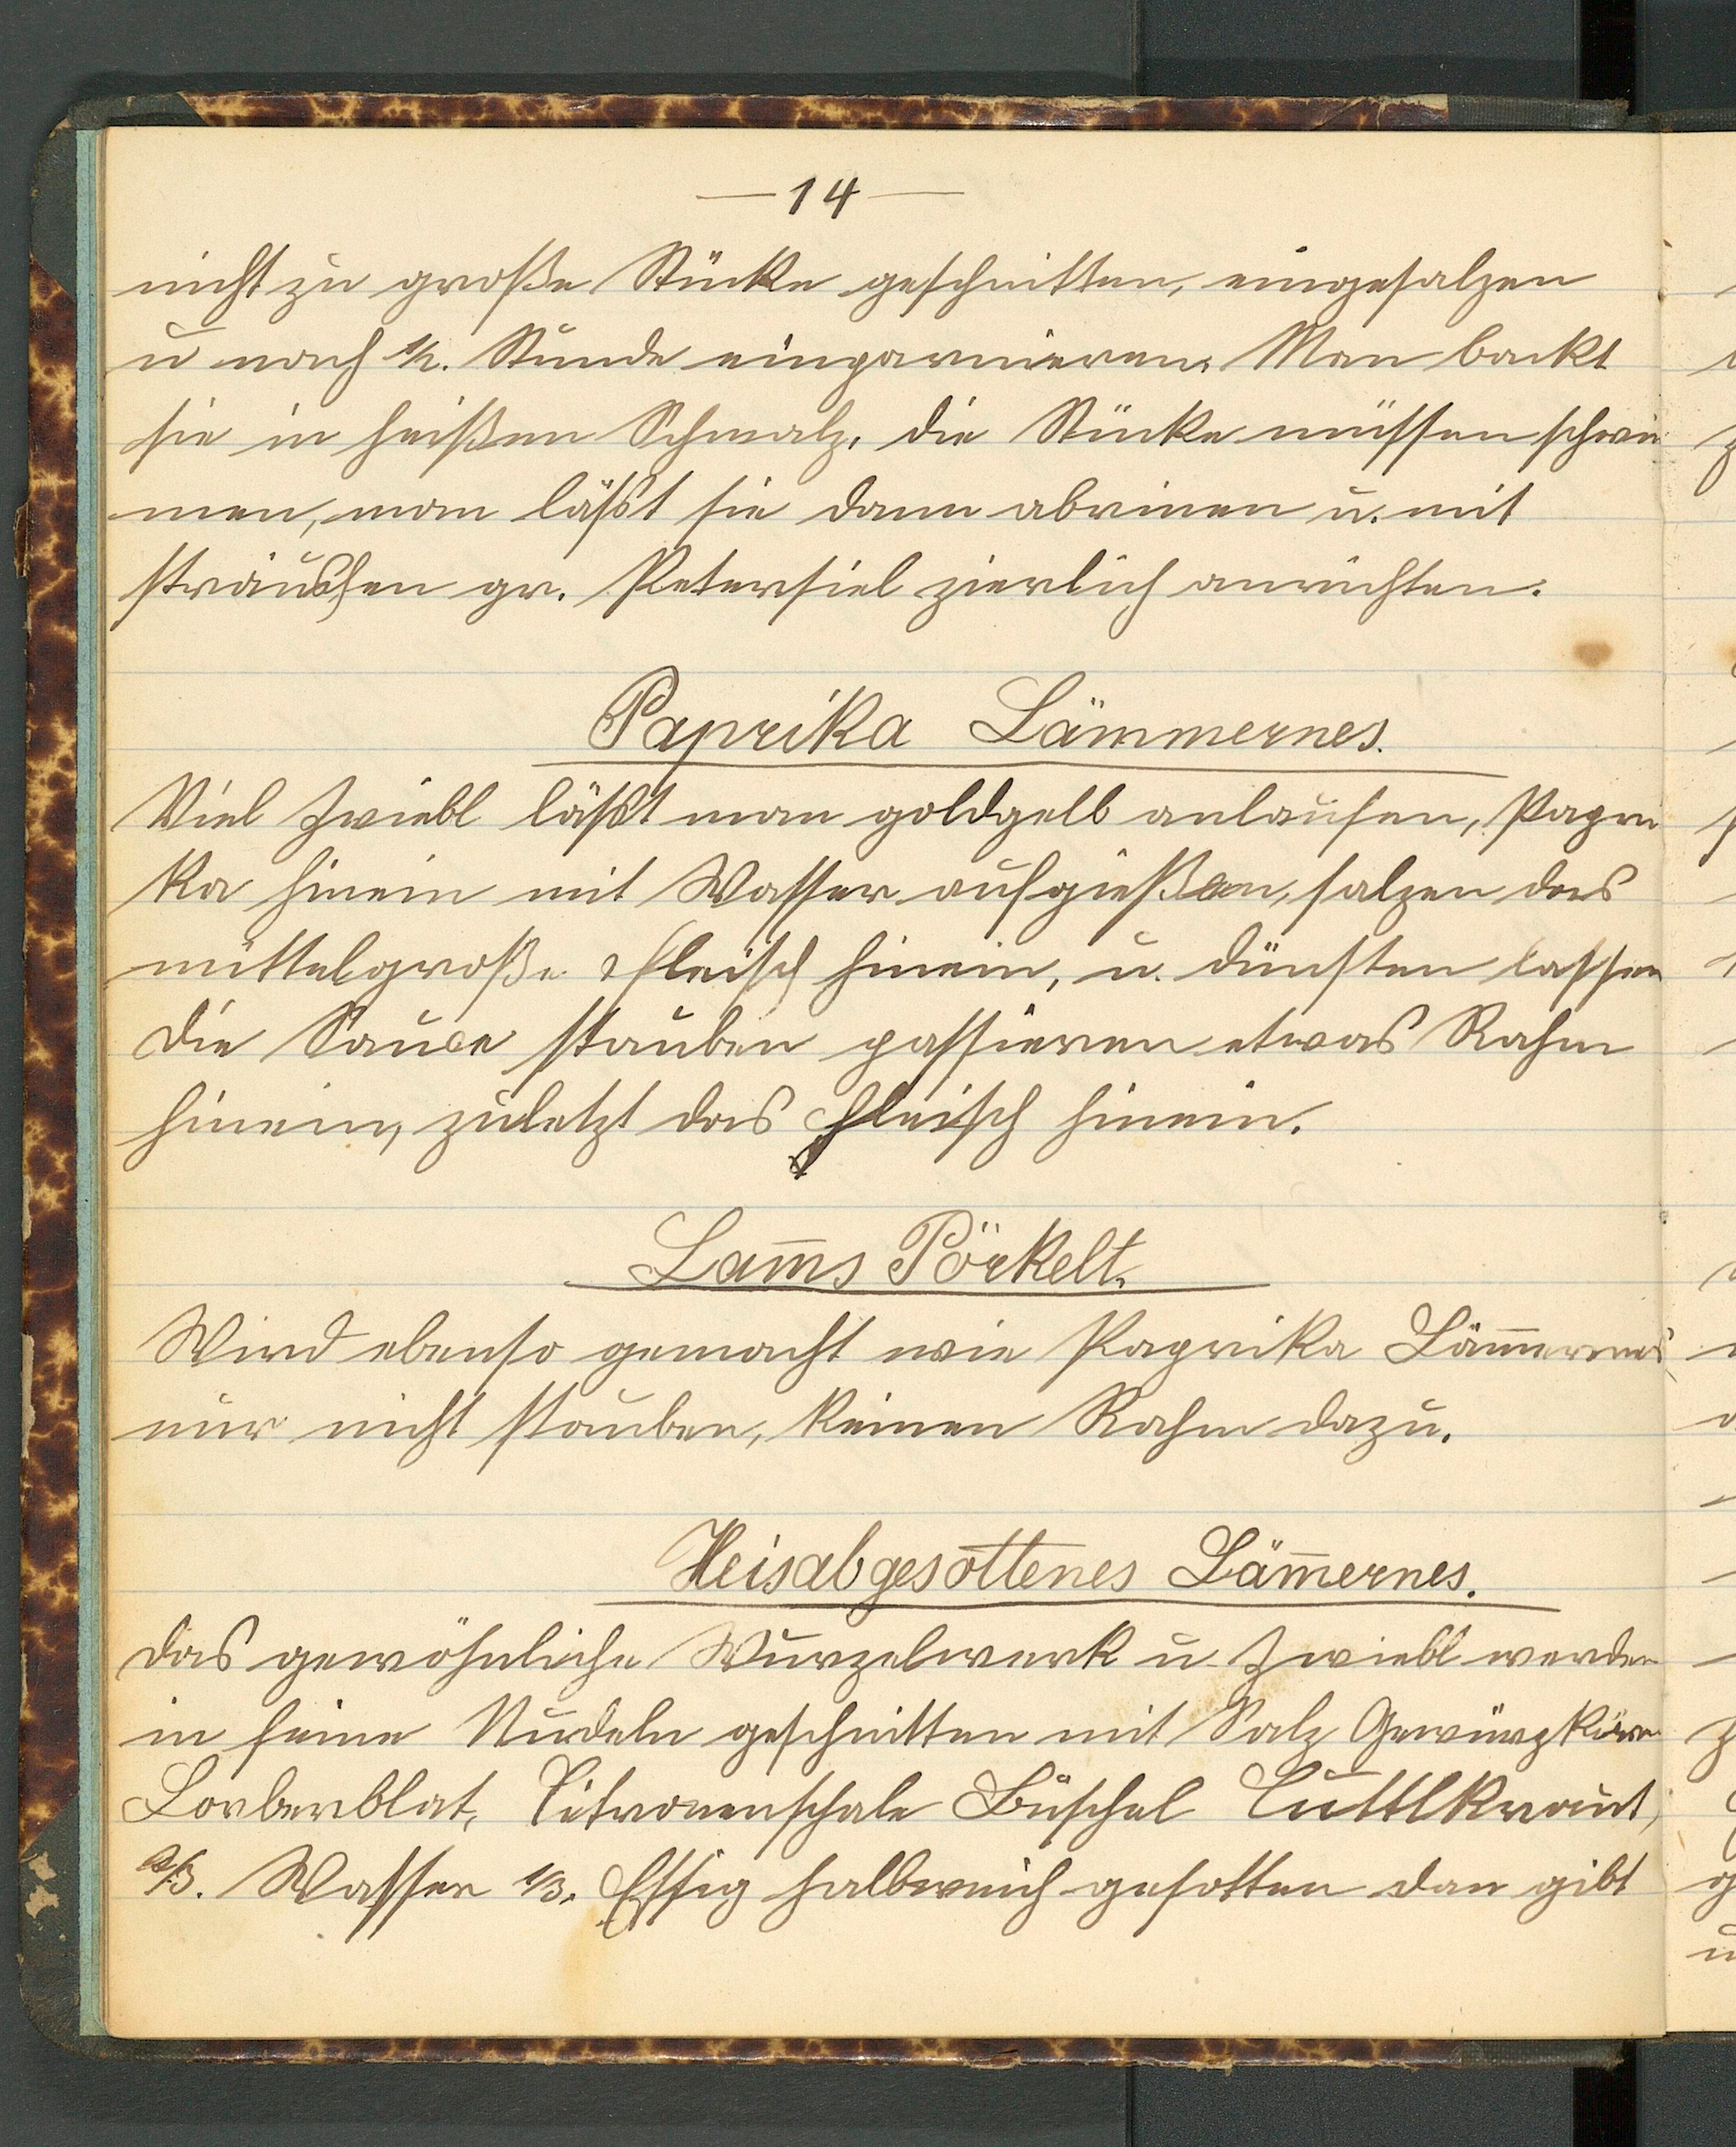 — 14 —
nicht zu große Stücke geschnitten, eingesalzen
u nach ½. Stunde eingarnieren. Man backt
sie in heißen Schmalz, die Stücke müssen schwi
men, man läßt sie dann abrinen u. mit
sträuschen gr. Petersiel zierlich anrichten.
Paprika Lämmernes.
Viel Zwiebl läßt man goldgelb anlaufen, Papri
ka hinein mit Wasser aufgießen, salzen das
mittelgroße Fleisch hinein, u. dünsten lassen
die Sauce stauben passieren etwas Rahm
hinein, zuletzt das Fleisch hinein.
Lam̅s Pörkelt.
Wird ebenso gemacht wie Paprika Läm̅ernes
nur nicht stauben, keinen Rahm dazu.
Heisabgesottenes Läm̅ernes.
das gewöhnliche Wurzelwerk u. Zwiebl werden
in feine Nudeln geschnitten mit Salz Gewürzkörn
Lorberblat, Citronenschale Büschel Cuttlkraut,
2/3. Wasser 1/3. Essig halbweich gesotten dan gibt